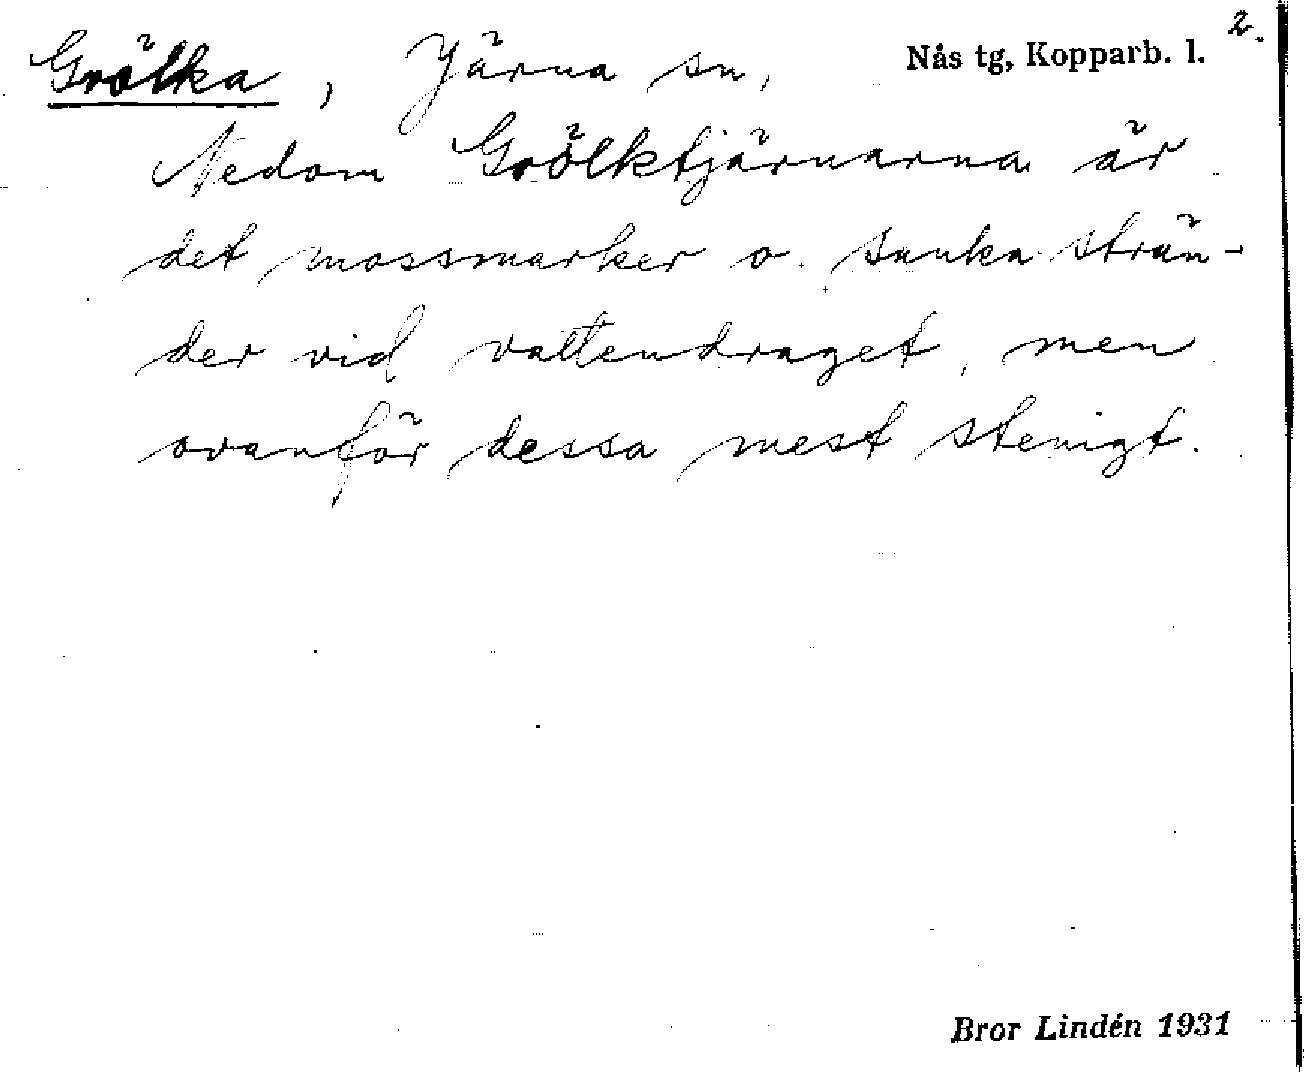 Grölka, Järna sn, Nås tg, Kopparb. l. 2.
Nedom Grölktjärnarna är
det mossmarker o. sanka strän-
der vid vattendraget, men
ovanför dessa mest stenigt.
Bror Lindén 1931